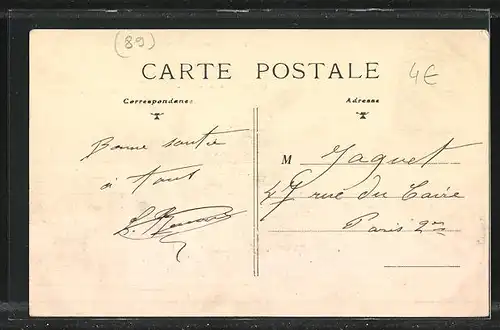 (89)
CARTE POSTALE
4€
Correspondance
Adresse
Bonne santée
à tous
M Jaquet
rue du Caire
Paris 2me